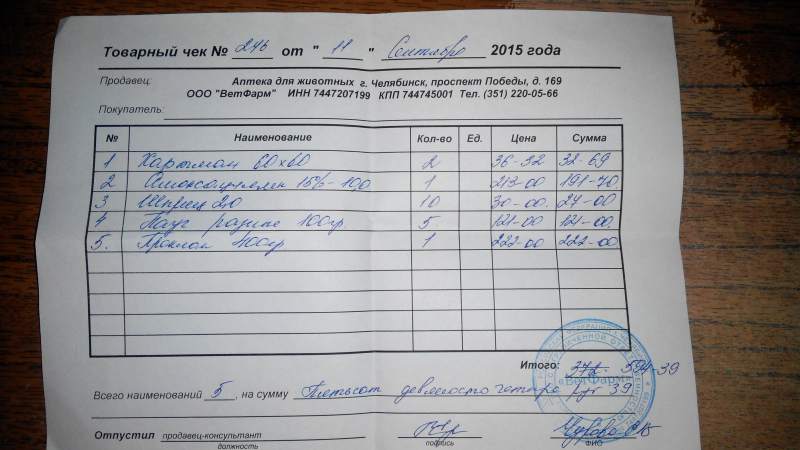 Товарный чек № 246 от " 11 " Сентября 2015 года
Продавец: Аптека для животных г. Челябинск, проспект Победы, д. 169
ООО "ВетФарм" ИНН 7447207199 КПП 744745001 Тел. (351) 220-05-66
Покупатель:
№ Наименование Кол-во Ед. Цена Сумма
1 Хартман 60х60 2 36-32 32-69
2 Амоксициллин 15% - 10,0 1 213-00 191-70
3 Шприц 2,0 10 30-00 27-00
4 Пауч 100гр. 5 121-00 121-00
5. Проплан 400гр 1 222-00 222-00
Итого: 594-39
«ВетФарм»
Всего наименований 5, на сумму Пятьсот девяносто четыре руб 39
Отпустил продавец-консультант
должность подпись ФИО